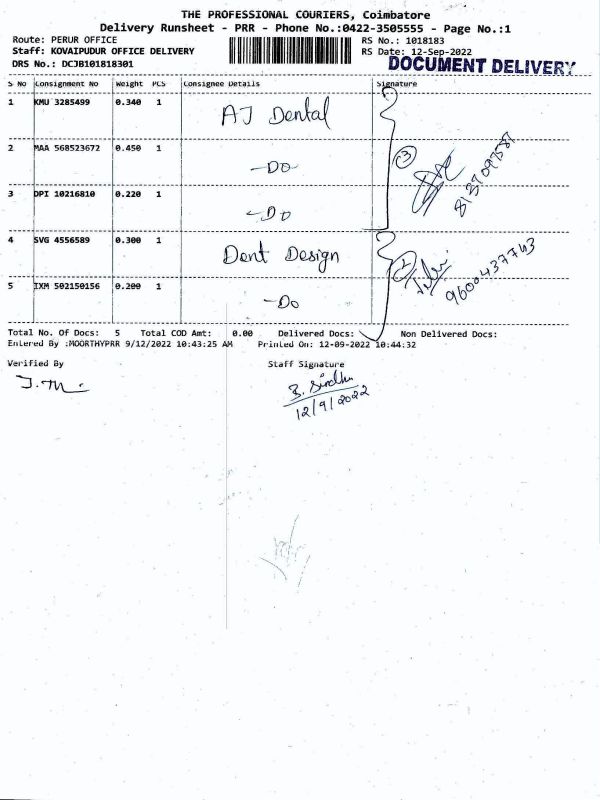 THE PROFESSIONAL COURIERS, Coimbatore
Delivery Runsheet - PRR - Phone No.:0422-3505555 - Page No.:1
Route: PERUR OFFICE RS No.: 1018183
Staff: KOVAIPUDUR OFFICE DELIVERY RS Date: 12-Sep-2022
DRS No.: DCJB101818301 DOCUMENT DELIVERY
S No Consignment No Weight PCS Consignee Details Signature
1 KMU 3285499 0.340 1 AJ Dental
2 MAA 568523672 0.450 1 -Do
3 DPI 10216810 0.220 1 -Do
3
4 SVG 4556589 0.300 1 Dent Design
2
9600437743
5 IXM 502150156 0.200 1 -Do
Total No. Of Docs: 5 Total COD Amt: 0.00 Delivered Docs: Non Delivered Docs:
Entered By :MOORTHYPRR 9/12/2022 10:43:25 AM Printed On: 12-09-2022 10:44:32
Verified By Staff Signature
B. Sindhu
12/9/2022